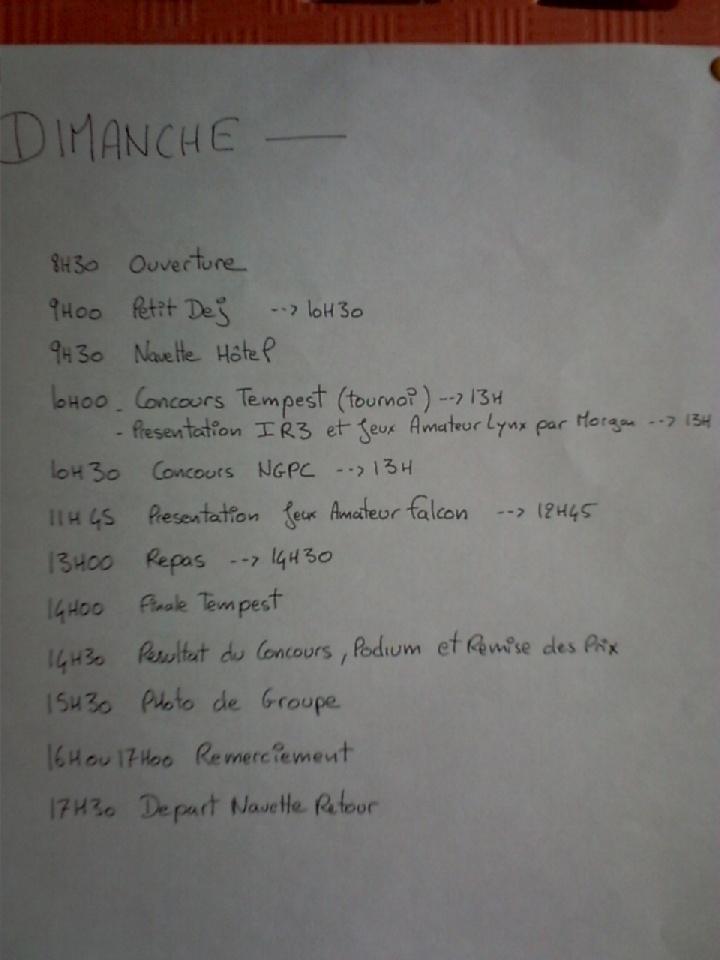 DIMANCHE —
8H30 Ouverture
9H00 Petit Dej --> 10H30
9H30 Navette Hôtel
10H00 - Concours Tempest (tournoi) --> 13H
- Presentation IR3 et Jeux Amateur Lynx par Morgan --> 13H
10H30 Concours NGPC --> 13H
11H45 Presentation Jeux Amateur falcon --> 12H45
13H00 Repas --> 14H30
14H00 Finale Tempest
14H30 Resultat du Concours, Podium et Remise des Prix
15H30 Photo de Groupe
16H ou 17H00 Remerciement
17H30 Depart Navette Retour